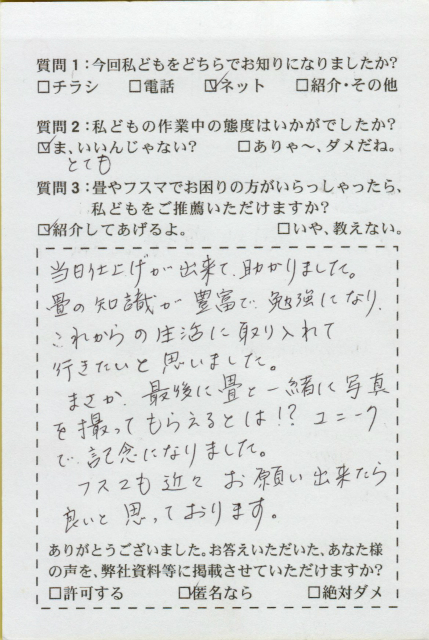 質問1：今回私どもをどちらでお知りになりましたか?
□チラシ □電話 ☑ネット □紹介・その他
質問2：私どもの作業中の態度はいかがでしたか?
☑ま、いいんじゃない? □ありゃ～、ダメだね。
とても
質問3：畳やフスマでお困りの方がいらっしゃったら、
私どもをご推薦いただけますか?
☑紹介してあげるよ。 □いや、教えない。
当日仕上げが出来て、助かりました。
畳の知識が豊富で、勉強になり、
これからの生活に取り入れて
行きたいと思いました。
まさか、最後に畳と一緒に写真
を撮ってもらえるとは!? ユニーク
で、記念になりました。
フスマも近々お願い出来たら
良いと思っております。
ありがとうございました。お答えいただいた、あなた様
の声を、弊社資料等に掲載させていただけますか?
□許可する ☑匿名なら □絶対ダメ